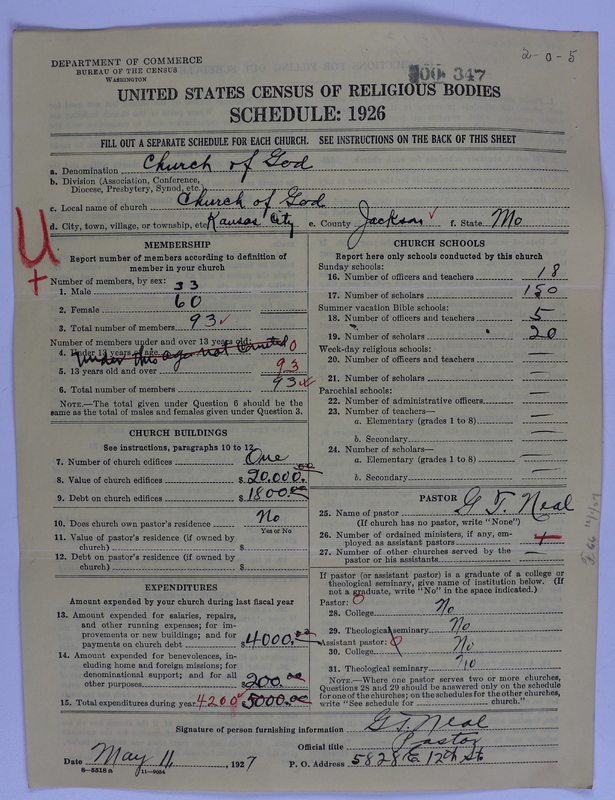 2-0-5
DEPARTMENT OF COMMERCE
BUREAU OF THE CENSUS
WASHINGTON
00- 347
UNITED STATES CENSUS OF RELIGIOUS BODIES
SCHEDULE: 1926
FILL OUT A SEPARATE SCHEDULE FOR EACH CHURCH. SEE INSTRUCTIONS ON THE BACK OF THIS SHEET
a. Denomination Church of God
b. Division (Association, Conference,
Diocese, Presbytery, Synod, etc.)
c. Local name of church Church of God
d. City, town, village, or township, etc. Kansas City e. County Jackson f. State Mo
U
+
MEMBERSHIP
Report number of members according to definition of
member in your church
Number of members, by sex:
1. Male 33
2. Female 60
3. Total number of members 93
Number of members under and over 13 years old:
4. Under 13 years of age under this age not counted 0
5. 13 years old and over 93
6. Total number of members 93
NOTE.—The total given under Question 6 should be
same as the total of males and females given under Question 3.
CHURCH BUILDINGS
See instructions, paragraphs 10 to 12
7. Number of church edifices One
8. Value of church edifices $ 20.000.00
9. Debt on church edifices $ 1800.00
10. Does church own pastor's residence No
Yes or No
11. Value of pastor's residence (if owned by
church) $
12. Debt on pastor's residence (if owned by
church) $
EXPENDITURES
Amount expended by your church during last fiscal year
13. Amount expended for salaries, repairs,
and other running expenses; for im-
provements or new buildings; and for
payments on church debt $ 4000.00
14. Amount expended for benevolences, in-
cluding home and foreign missions; for
denominational support; and for all
other purposes $ 200.00
15. Total expenditures during year 4200 $ 5000.00
CHURCH SCHOOLS
Report here only schools conducted by this church
Sunday schools:
16. Number of officers and teachers 18
17. Number of scholars 150
Summer vacation Bible schools:
18. Number of officers and teachers 5
19. Number of scholars 20
Week-day religious schools:
20. Number of officers and teachers —
21. Number of scholars —
Parochial schools:
22. Number of administrative officers —
23. Number of teachers—
a. Elementary (grades 1 to 8) —
b. Secondary —
24. Number of scholars—
a. Elementary (grades 1 to 8) —
b. Secondary —
PASTOR
25. Name of pastor G T. Neal
(If church has no pastor, write "None")
26. Number of ordained ministers, if any, em-
ployed as assistant pastors
27. Number of other churches served by the
pastor or his assistants —
If pastor (or assistant pastor) is a graduate of a college or
theological seminary, give name of institution below. (If
not a graduate, write "No" in the space indicated.)
Pastor: 0
28. College No
29. Theological seminary No
Assistant pastor: 0
30. College No
31. Theological seminary No
NOTE.—Where one pastor serves two or more churches,
Questions 28 and 29 should be answered only on the schedule
for one of the churches; on the schedules for the other churches,
write "See schedule for church."
Signature of person furnishing information G T. Neal
Official title Pastor
Date May 11, 1927 P. O. Address 5828 E 12th St
8-5518 a 11-9054